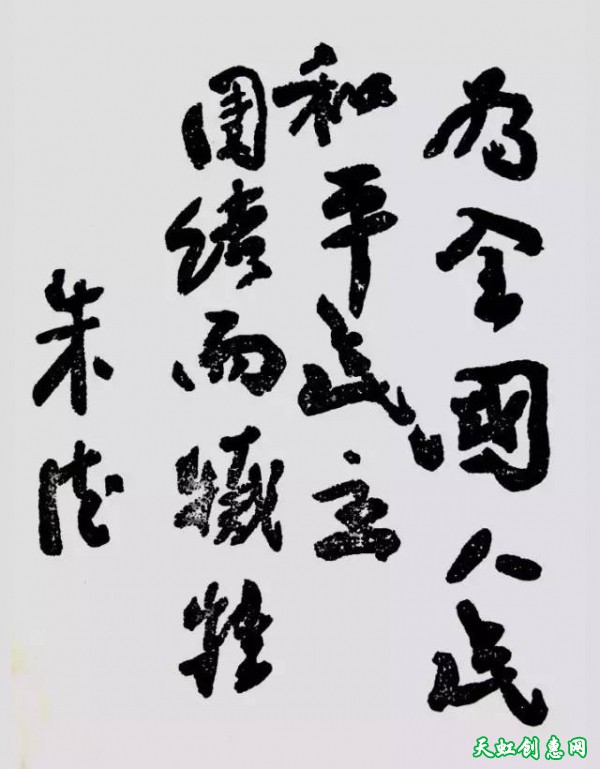 为全國人民
和平民主
团结而牺牲
朱德
天虹创惠网